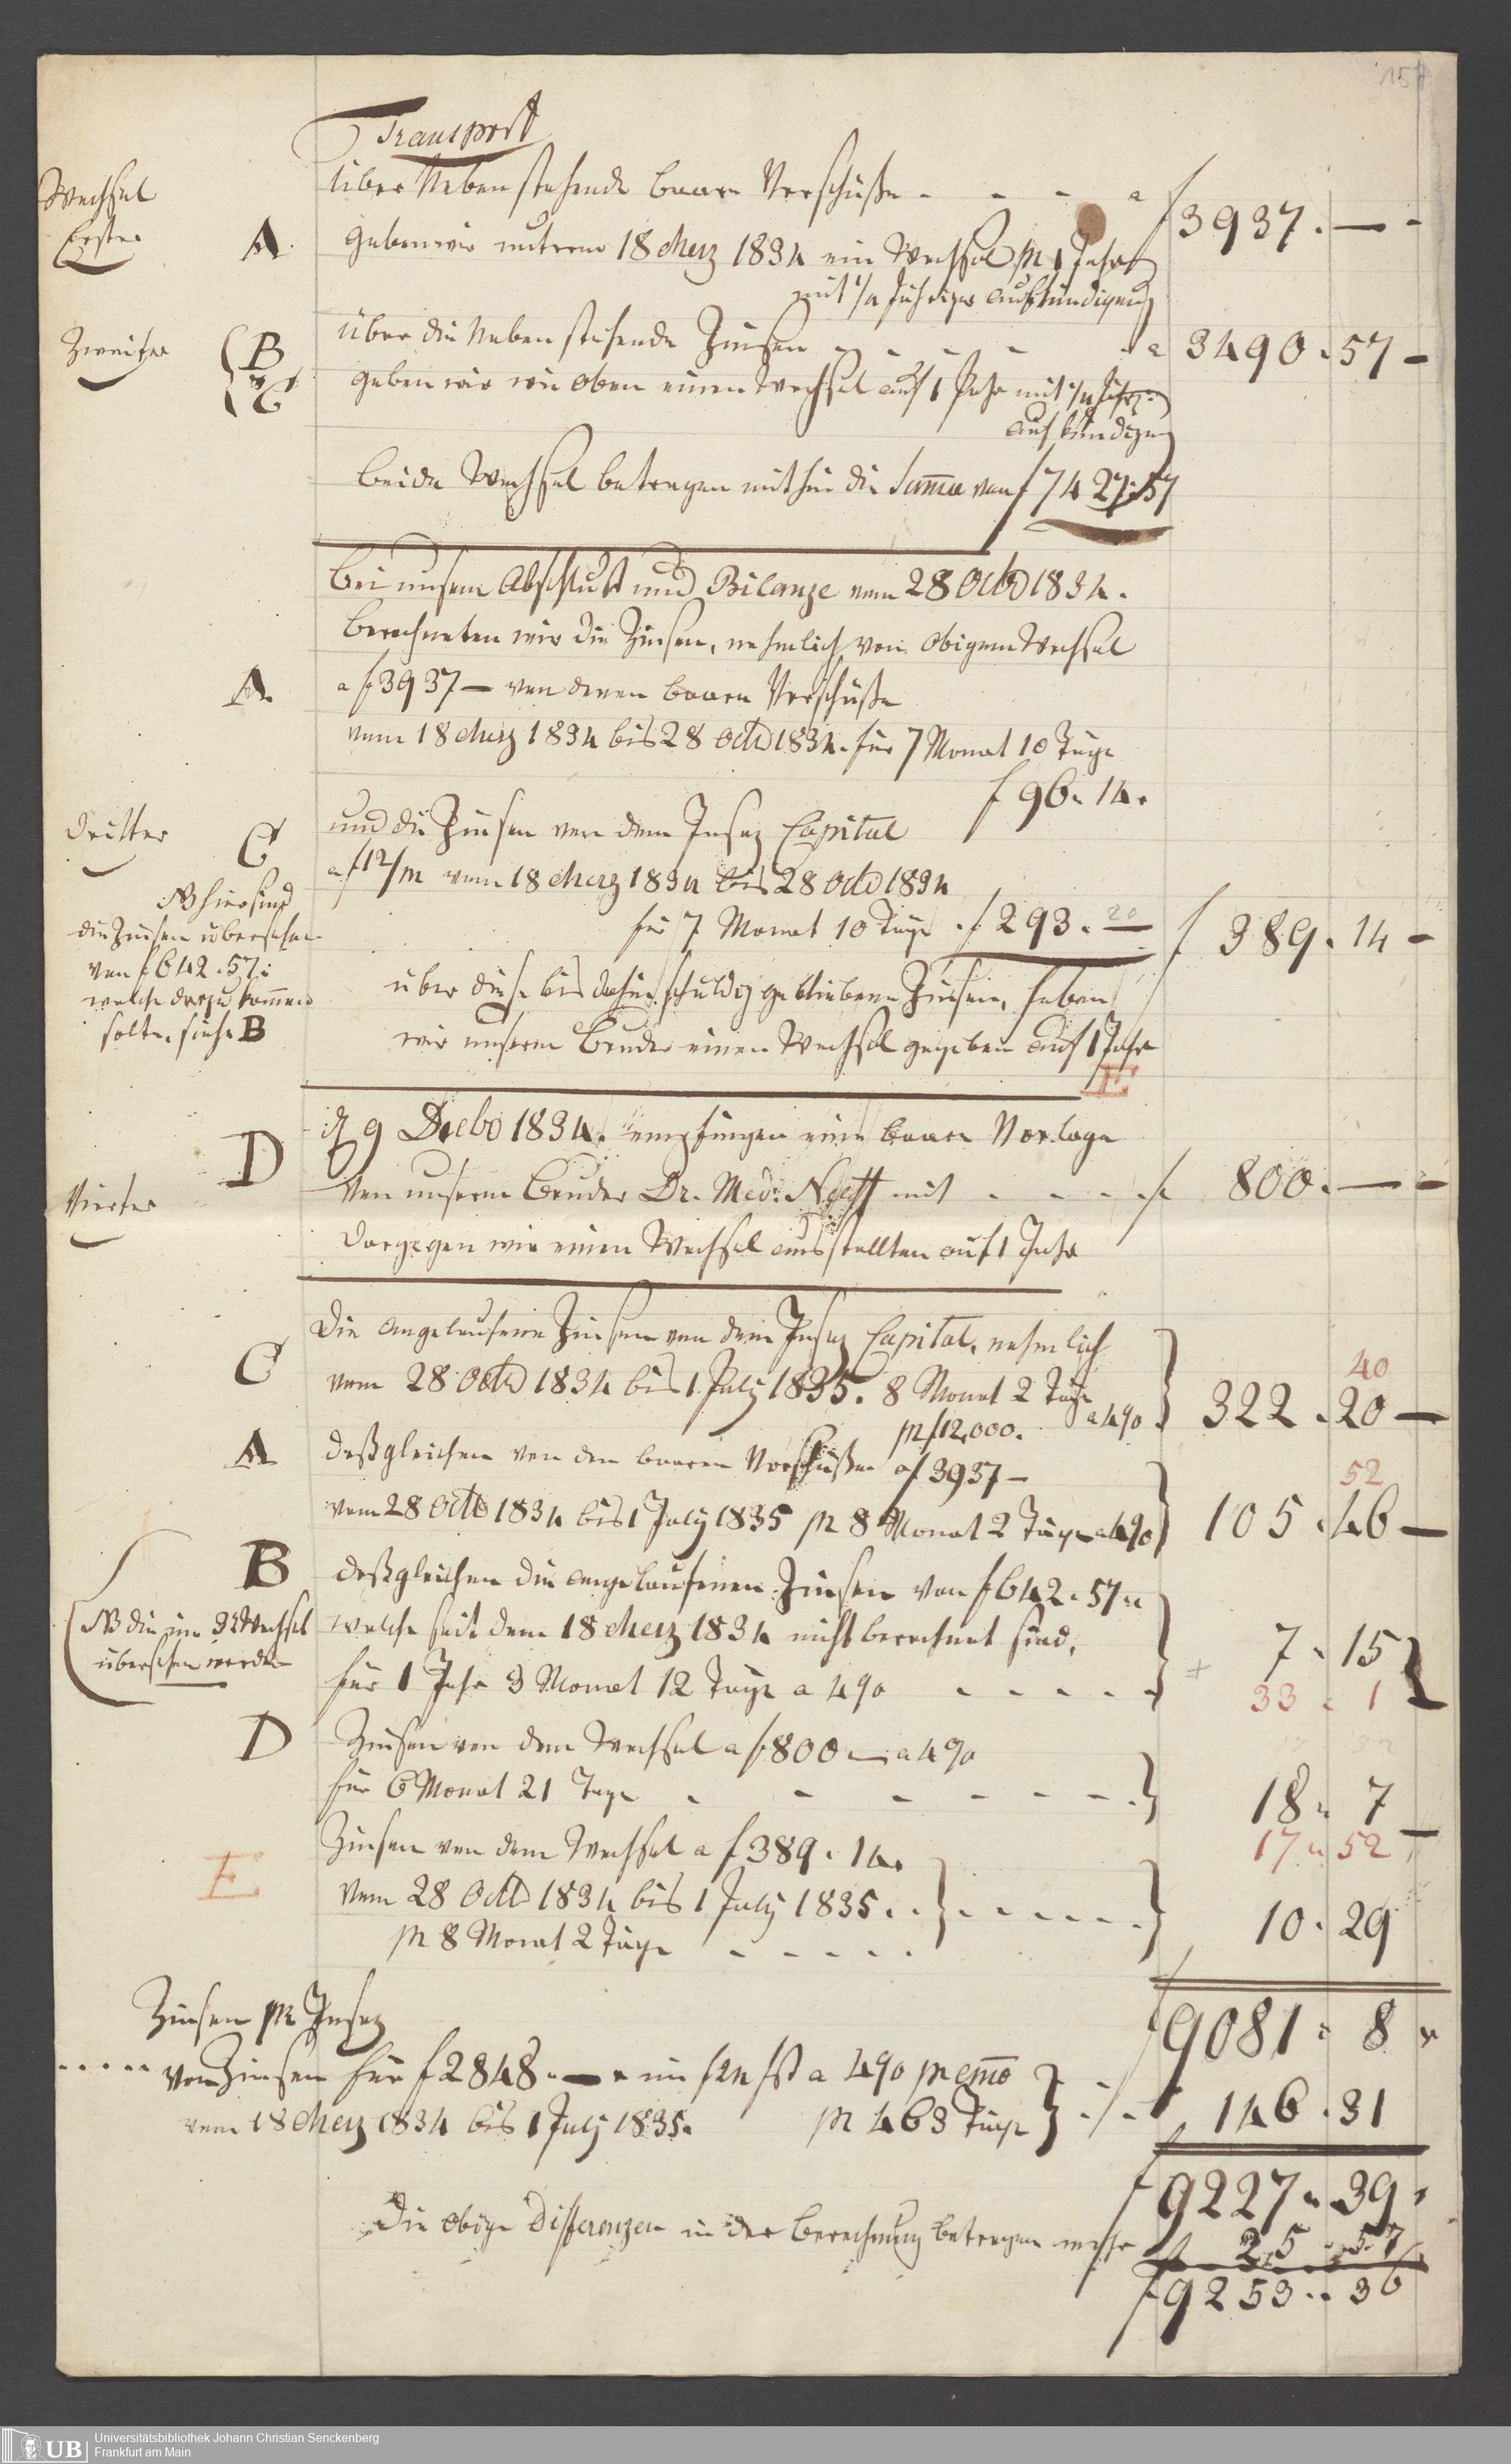 157
Transport
über Neben stehende baare Vorschüße - - - a f 3937 . — -
Wechsel
Erster A geben wir unterm 18 Merz 1834 ein Wechsel pr 1 Jahr
mit 1/4 jähriger Aufkündigung
Zweiter B über die Neben stehende Zinsen - - - - a 3490 . 57 —
& C geben wir wie oben einen Wechsel auf 1 Jahr mit 1/4 Jähr:
Aufkündigung
beide Wechsel betragen mithin die Summa von f 7427 . 57
bei unserm Abschluß und Bilanze vom 28 Octb 1834 .
berechneten wir die Zinsen, nehmlich von obigem Wechsel
A a f 3937 — von denen baaren Vorschüße
vom 18 Merz 1834 bis 28 Octb 1834 . für 7 Monat 10 Tage
f 96 . 14 .
Dritter C und die Zinsen von dem Insaz Capital
a f 12/m vom 18 Merz 1834 bis 28 Octb 1834
für 7 Monat 10 Tage . f 293 . 20 f 389 . 14 —
NB hier sind
die Zinsen übersehen
von f 642 . 57 :
welche darzu kommen
solte. siehe B
über diese bis dahin schuldig gebliebene Zinsen, haben
wir unserm Bruder einen Wechsel gegeben auf 1 Jahr
E
D d 9 Decbr 1834 . empfingen eine baare Vorlage
Vierter von unserm Bruder Dr. Med: Neeff mit . - - - . f 800 . — —
dargegen wir einen Wechsel ausstellten auf 1 Jahr
Die angelaufene Zinsen von dem Insaz Capital, nehmlich
C vom 28 Octb 1834 bis 1 July 1835 . 8 Monat 2 Tage
40
pr f 12,000 . a 4 % 322 . 20 —
A deßgleichen von den baaren Vorschüßen a f 3937 —
52
vom 28 Octb 1834 bis 1 July 1835 pr 8 Monat 2 Tage a 4 % 105 . 46 —
B deßgleichen die angelaufenen Zinsen von f 642 . 57
NB die im 3t Wechsel
übersehen worden
welche seit dem 18 Merz 1834 nicht berechnet sind,
für 1 Jahr 3 Monat 12 Tage a 4 % - - - - - + 7 . 15
33 . 1
D Zinsen von dem Wechsel a f 800 — a 4 %
für 6 Monat 21 Tage - - - - - - . 18 . 7
17 . 52
Zinsen von dem Wechsel a f 389 . 14 .
E vom 28 Octb 1834 bis 1 July 1835 . . - - - - - . 10 . 29
pr 8 Monat 2 Tage - - - - .
f 9081 : 8
Zinsen pr Insaz
von Zinsen für f 2848 . — a 4 % pr
vom 18 Merz 1834 bis 1 July 1835 . pr 463 Tage 146 . 31
f 9227 . 39 .
Die obige Differenzen in der Berechnung betragen mehr f 25 . 57
f 9253 . . 36
UB Universitätsbibliothek Johann Christian Senckenberg
Frankfurt am Main